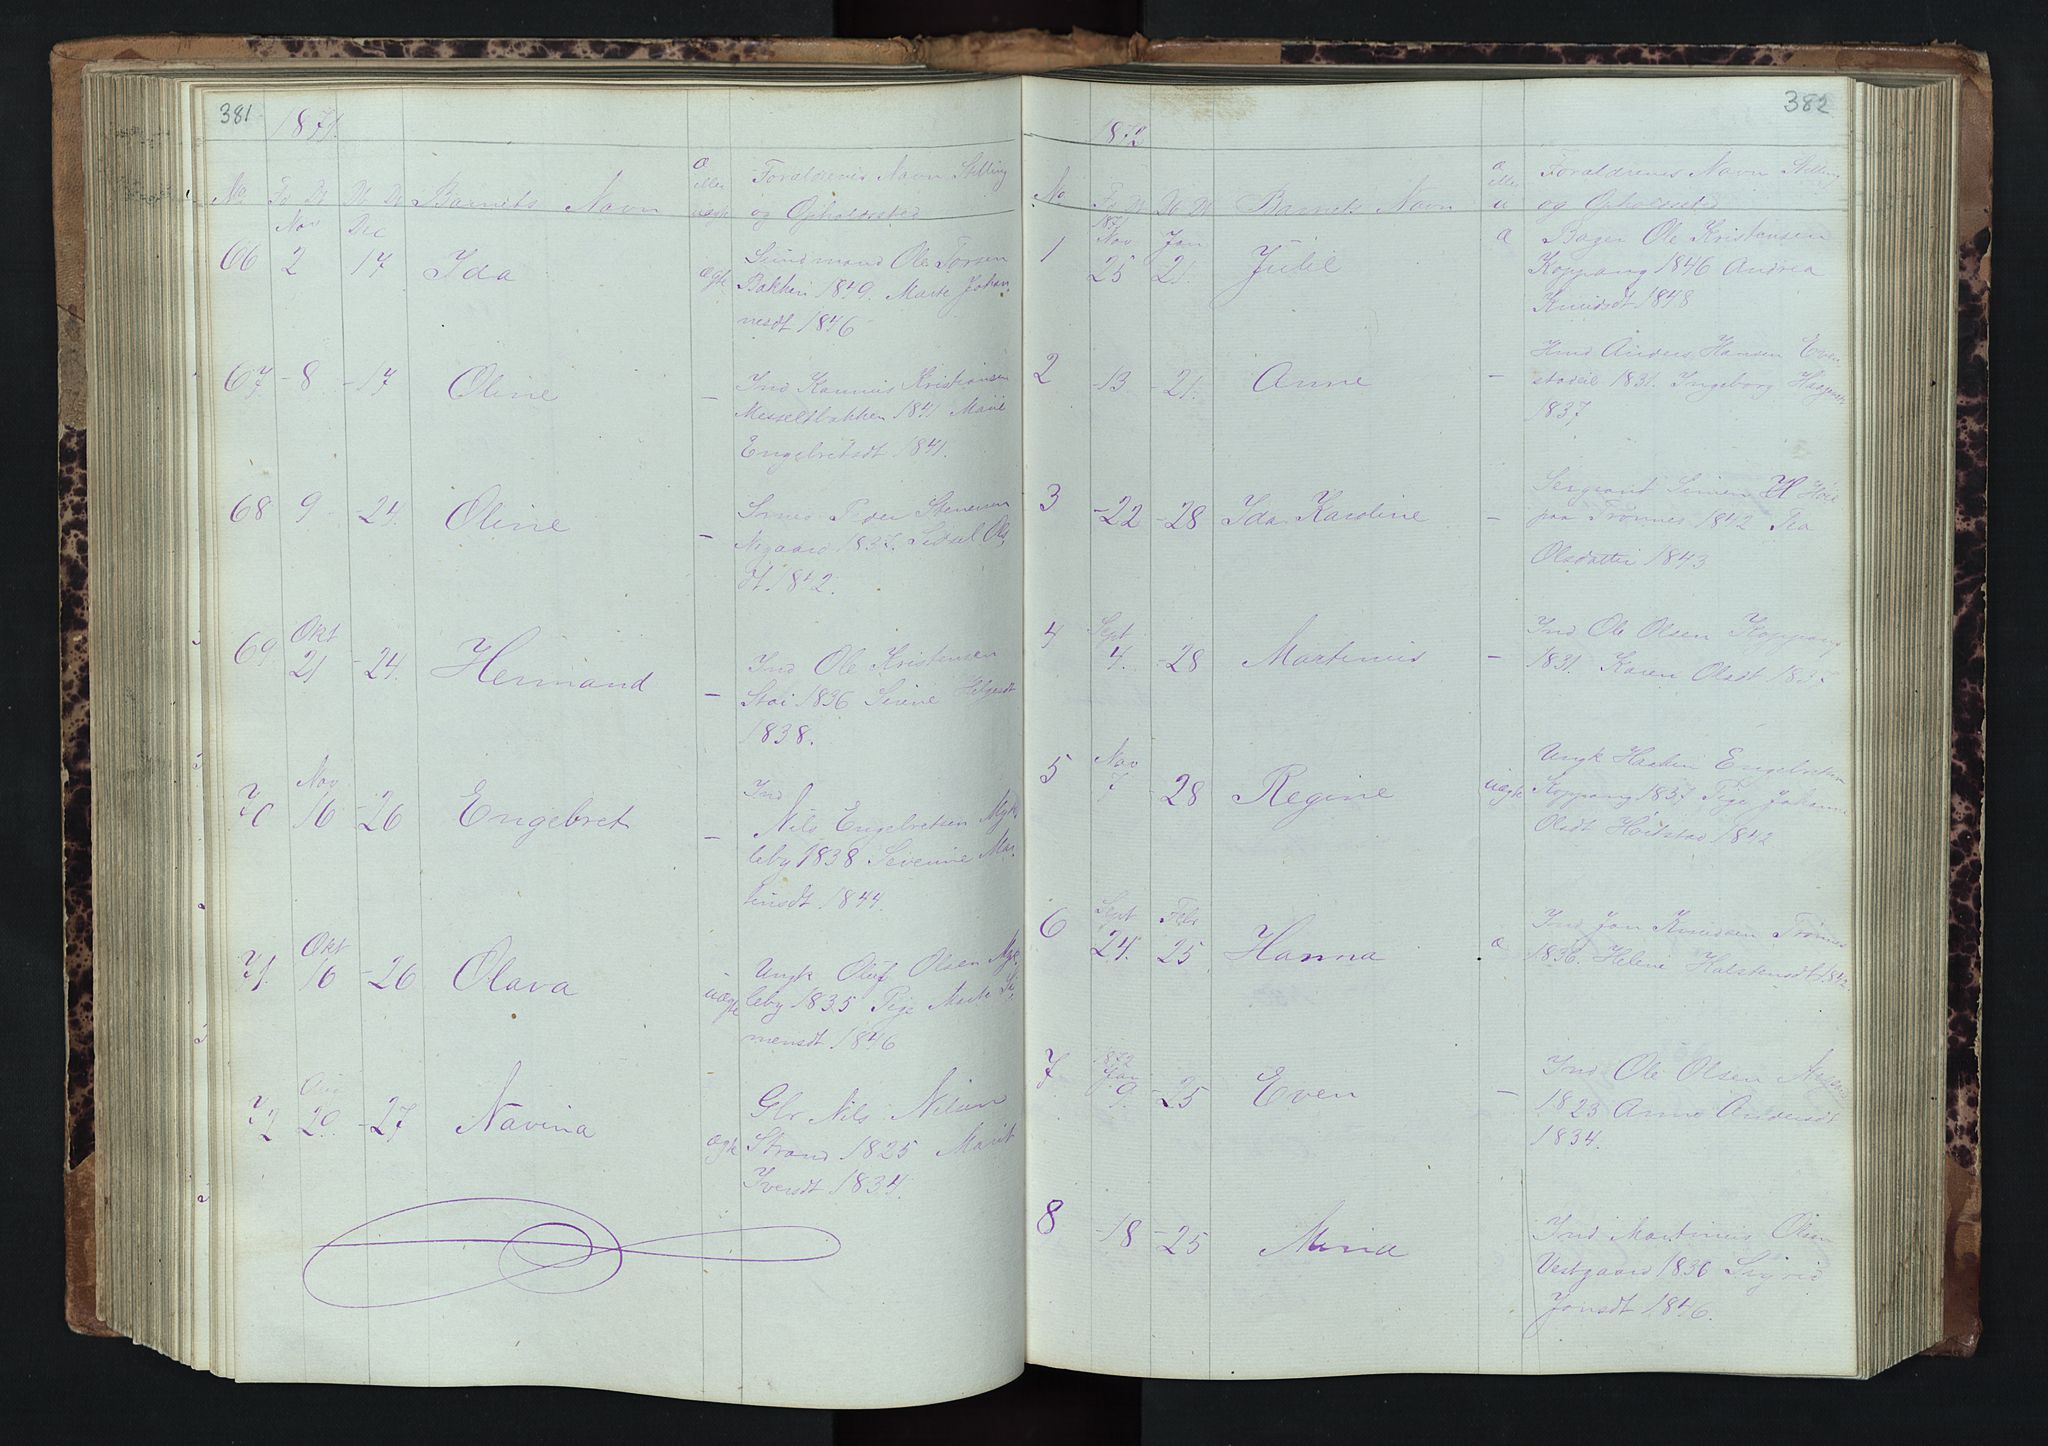 381
1871.
No Fd Dt Dt Dt Barnets Navn
æ eller uægte
Forældrenes Navn Stilling
og Opholdssted
Nov Dec
66 2 17 Ida ægte
Ole Torsen
Bakken 1849. Marte Johan-
nesdt 1846
67 - 8 - 17 Oline -
Ind Kristiansen
Messeltbakken 1841. Marie
Engebretsdt 1841.
68 9 - 24. Oline -
Peder Stenersen
1837. Sidsel Ols
dt. 1842.
69 Okt 21 - 24. Hermand -
Ind Ole Kristensen
Stai 1836
1838.
70 Nov 16 - 26 Engebret -
Ind
Nils Engebretsen Myk-
leby 1838 Severine Mar-
tinsdt. 1844.
71. Okt 16 - 26 Olava uægte
Ungk Oluf Olsen Myk-
leby 1835 Pige Marte Si-
mensdt 1846
72 Aug 20. - 27 Navina ægte
Gbr Nils Nilsen
Strand 1825 Marit
Iversdt 1834.
382
1872
No Fd Dt Dt Dt Barnets Navn
æ eller u
Forældrenes Navn Stilling
og Opholdssted
1 1871 Nov 25 Jan 21. Julie æ
Bager Ole Kristensen
Koppang 1846 Andrea
Knudsdt 1848
2 - 13 - 21. Anne -
Anders Hansen Even-
stadeie 1831. Ingeborg
1837
3 - 22 - 28 Ida Karoline -
Sergeant Simen
paa Trønnes 1842 Pea
Olsdatter 1843
4 Sept 4. - 28 Martinus -
Ind Ole Olsen Koppang
1831. Karen Olsdt 1837
5 Nov 7 - 28 Regine uægte
Ungk Haaken Engebretsen
Koppang 1837 Pige Johanne
Olsdt 1842
6 Sept 24. Febr 25 Hanna æ
Ind Jon Knudsen Trønnes
1836. Helene Halstensdt 1842.
7 1872 Jan 9. - 25 Even -
Ind Ole Olsen
1823 Anne Andersdt
1834.
8 - 18 - 25 Mina
Ind Martinus Olsen
Vestgaard 1836 Sigrid
Jonsdt 1846.